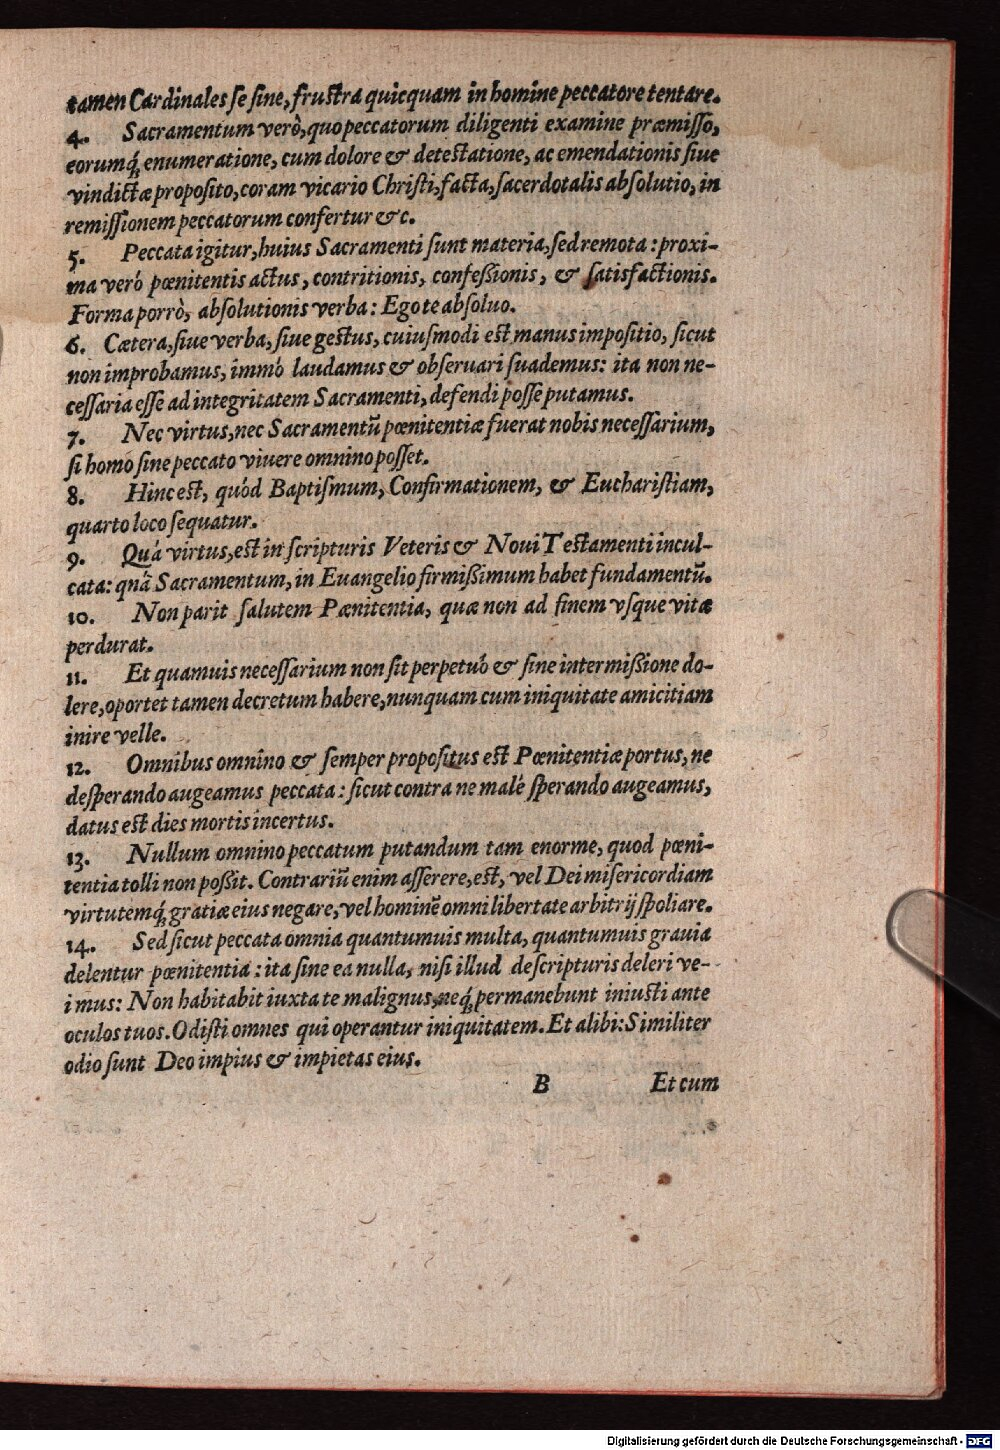 tamen Cardinales se sine, frustra quicquam in homine peccatore tentare.
4. Sacramentum verò, quo peccatorum diligenti examine præmisso,
eorumq́; enumeratione, cum dolore & detestatione, ac emendationis siue
vindictæ proposito, coram vicario Christi, facta, sacerdotalis absolutio, in
remissionem peccatorum confertur &c.
5. Peccata igitur, huius Sacramenti sunt materia, sed remota: proxi-
ma veró pœnitentis actus, contritionis, confeßionis, & satisfactionis.
Forma porrò, absolutionis verba: Ego te absoluo.
6. Cætera, siue verba, siue gestus, cuiusmodi est manus impositio, sicut
non improbamus, immó laudamus & obseruari suademus: ita non ne-
cessaria esse ad integritatem Sacramenti, defendi posse putamus.
7. Nec virtus, nec Sacramentū pœnitentiæ fuerat nobis necessarium,
si homo sine peccato viuere omnino posset.
8. Hinc est, quód Baptismum, Confirmationem, & Eucharistiam,
quarto loco sequatur.
9. Quá virtus, est in scripturis Veteris & Noui Testamenti incul-
cata: qnā Sacramentum, in Euangelio firmißimum habet fundamentū.
10. Non parit salutem Pænitentia, quæ non ad finem vsque vitæ
perdurat.
11. Et quamuis necessarium non sit perpetuó & sine intermißione do-
lere, oportet tamen decretum habere, nunquam cum iniquitate amicitiam
inire velle.
12. Omnibus omnino & semper propositus est Pœnitentiæ portus, ne
desperando augeamus peccata: sicut contra ne malé sperando augeamus,
datus est dies mortis incertus.
13. Nullum omnino peccatum putandum tam enorme, quod pœni-
tentia tolli non poßit. Contrariū enim asserere, est, vel Dei misericordiam
virtutemq́; gratiæ eius negare, vel hominē omni libertate arbitrij spoliare.
14. Sed sicut peccata omnia quantumuis multa, quantumuis grauia
delentur pœnitentia: ita sine ea nulla, nisi illud de scripturis deleri ve-
imus: Non habitabit iuxta te malignus, neq́; permanebunt iniusti ante
oculos tuos. Odisti omnes qui operantur iniquitatem. Et alibi: Similiter
odio sunt Deo impius & impietas eius.
B Et cum
Digitalisierung gefördert durch die Deutsche Forschungsgemeinschaft - DFG